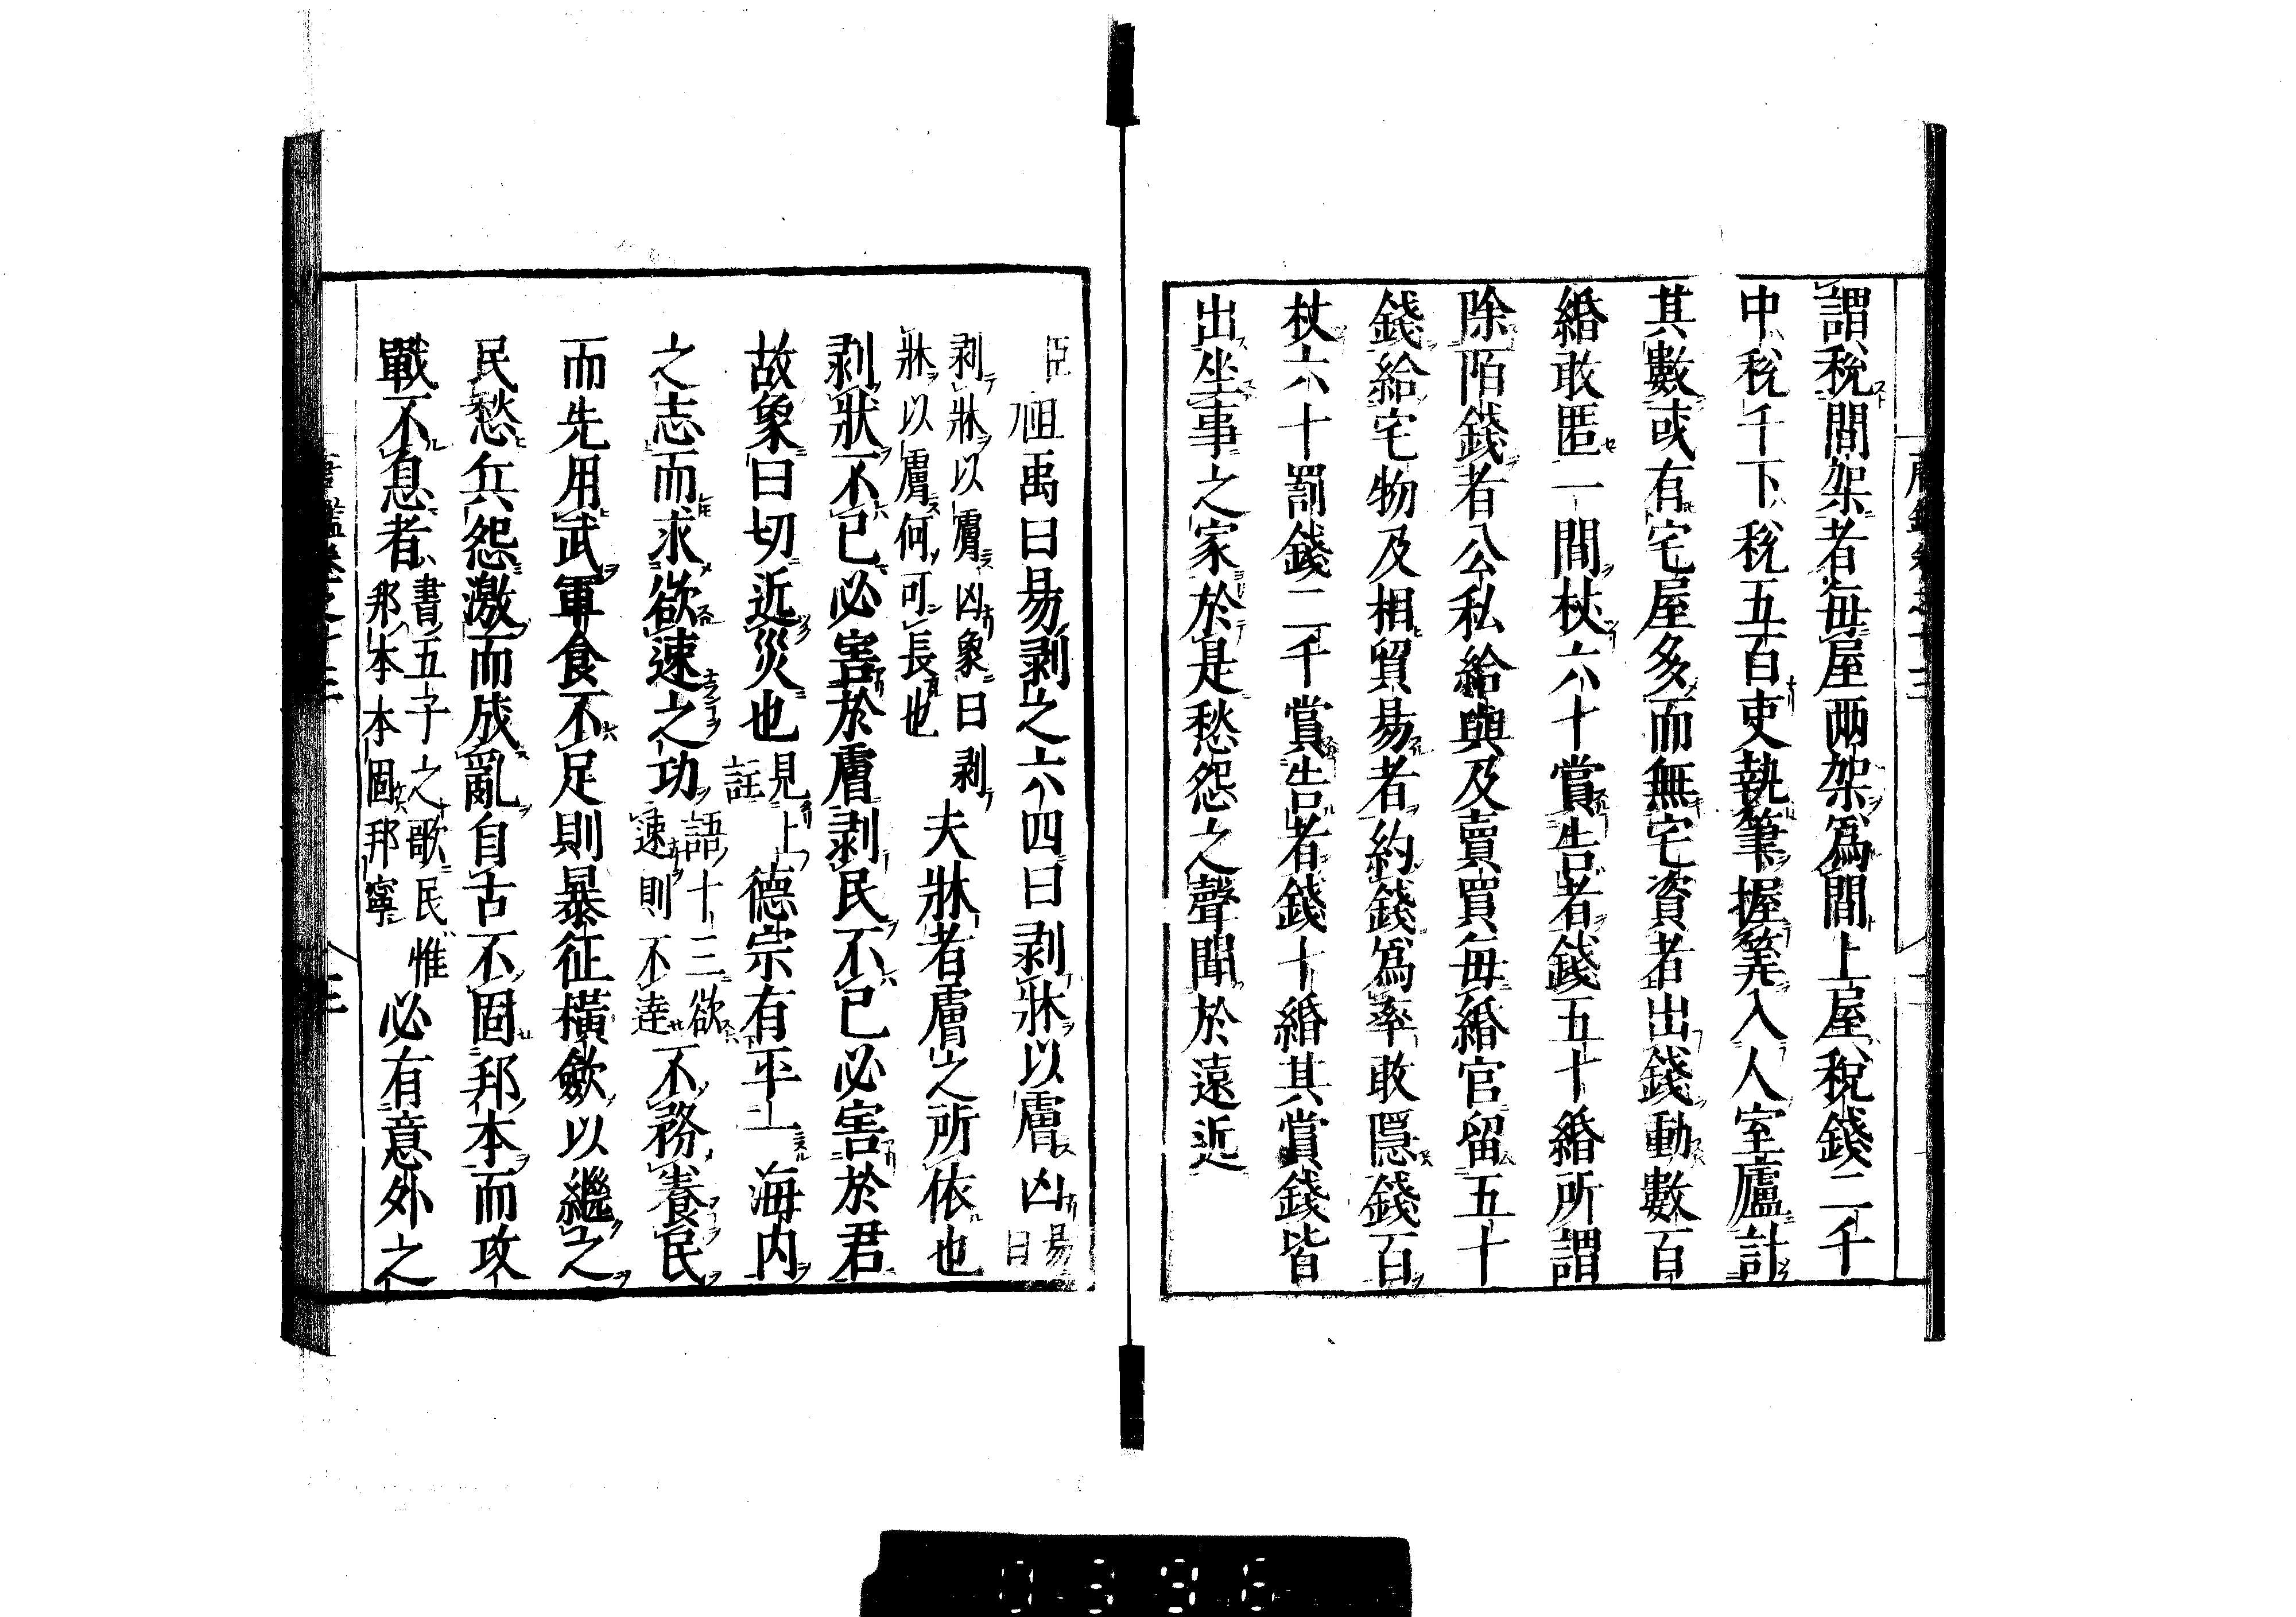 謂稅間架者毎屋兩架爲間上屋稅錢二千
中稅千下稅五百吏執筆握筭入人室廬計
其數或有宅屋多而無宅資者出錢動數百
緡敢匿一間杖六十賞告者錢五十緡所謂
除陌錢者公私給與及賣買毎緡官留五十
錢給宅物及相貿易者約錢爲率敢隱錢百
杖六十罰錢二千賞告者錢十緡其賞錢皆
出坐事之家於是愁怨之聲聞於遠近
臣祖禹曰易剥之六四曰剥牀以膚凶易曰
剥牀以膚凶象曰剥
牀以膚何可長也
夫牀者膚之所依也
剥牀不已必害於膚剥民不已必害於君
故象曰切近災也見上註德宗有平一海内
之志而求欲速之功語十三欲速則不達不務養民
而先用武軍食不足則暴征橫斂以繼之
民愁兵怨激而成亂自古不固邦本而攻
戰不息者書五子之歌民惟邦本本固邦寧必有意外之